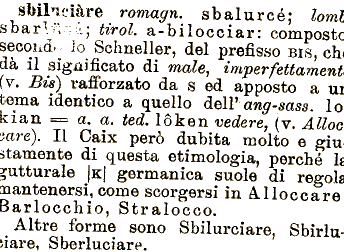 sbiluciàre romagn. sbalurcé; lomb
tirol. a-bilocciar: composto
secondo lo Schneller, del prefisso BIS, che
dà il significato di male, imperfettamente
(v. Bis) rafforzato da s ed apposto a un
tema identico a quello dell' ang-sass. lo
kian = a. a. ted. lôken vedere, (v. Alloc
care). Il Caix però dubita molto e giu-
stamente di questa etimologia, perchè la
gutturale |K| germanica suole di regola
mantenersi, come scorgersi in Alloccare
Barlocchio, Stralocco.
Altre forme sono Sbilurciare, Sbirlu-
ciare, Sberluciare.